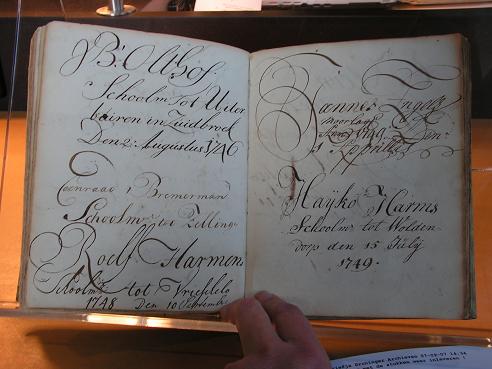 B: Olthof
Schoolmr Tot Uiter
buiren in Zuidbroe
Den 2: Augustus 1746
Coenraad Bremerman
Schoolmr tot Zelling
Roelf Harmens
Schoolmr tot Vriescheloo
1748 Den 10 November
Hannes Engels
1749 Den
1 Aprill
Hayko Harms
Schoolmr tot Wolden
dorp den 15 July
1749.
Groninger Archieven